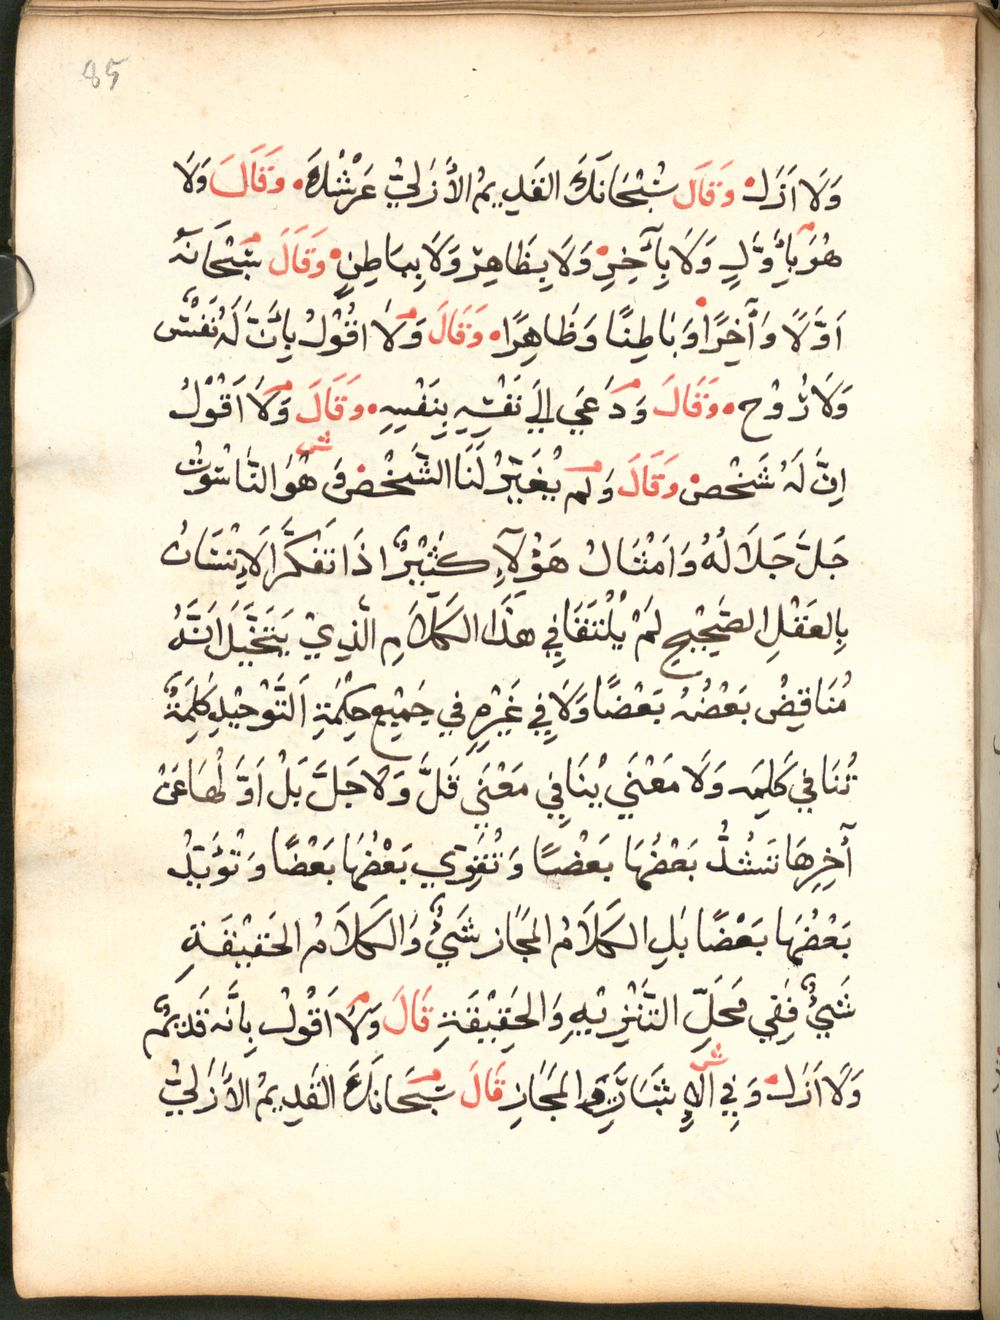 85
وَلَا اَزَل وَقَالَ سُبْحَانَكَ القَدِيمُ الأَزَلِيُّ عَرْشُكَ وَقَالَ وَلَا
هُوَ بِأَوَّلٍ وَلَا بِآخِرٍ وَلَا بِظَاهِرٍ وَلَا بِبَاطِنٍ وَقَالَ سُبْحَانَهُ
اَوَّلًا وَآخِرًا وَبَاطِنًا وَظَاهِرًا وَقَالَ وَلَا اقُوْلُ بِأَنَّ لَهُ نَفْسٌ
وَلَا رُوْح وَقَالَ وَدَعَي اِلَي نَفْسِهِ بِنَفْسِهِ وَقَالَ وَلَا اَقُوْلُ
اِنَّ لَهُ شَخْص وَقَالَ وَلَم الشَّخْص هُوَ النَّاسُوْتُ
جَلَّ جَلَالُهُ وَاَمْثَالُ هَؤُلَآءِ كَثِيْرٌ اِذَا تَفَكَّرَ الاِنْسَانُ
بِالعَقْلِ الصَّحِيْحِ لَمْ هَذَا الكَلَامِ الَّذِيْ يَتَخَيَّلُ اَنَّهُ
مُنَاقِضٌ بَعْضُهُ بَعْضًا وَلَا فِي غَيْرِهِ فِي جَمِيْعِ حِكْمَةِ اَلتَّوْحِيْدِ كَلِمَةٌ
تُنَافِي كَلِمَه وَلَا مَعْنَي يُنَافِي مَعْنَي قَلَّ وَلَا جَلَّ بَلْ اَوَّلُهَا عَنْ
آخِرِهَا تَشُدُّ بَعْضُهَا بَعْضًا وَتُقَوِّي بَعْضُهَا بَعْضًا وَتُؤَيِّدُ
بَعْضُهَا بَعْضًا بَلِ الكَلَامُ المَجَاز شَيْءٌ وَالكَلَامُ الحَقِيْقَةِ
شَيْءٌ فَفِي مَحَلِّ التَّنْزِيْهِ وَالحَقِيْقَةِ قَالَ وَلَا اَقُوْلُ بِاَنَّه قَدِيْمٌ
وَلَا اَزَل وَفِي المَجَازِ قَالَ سُبْحَانَكَ القَدِيمُ الأَزَلِيُّ